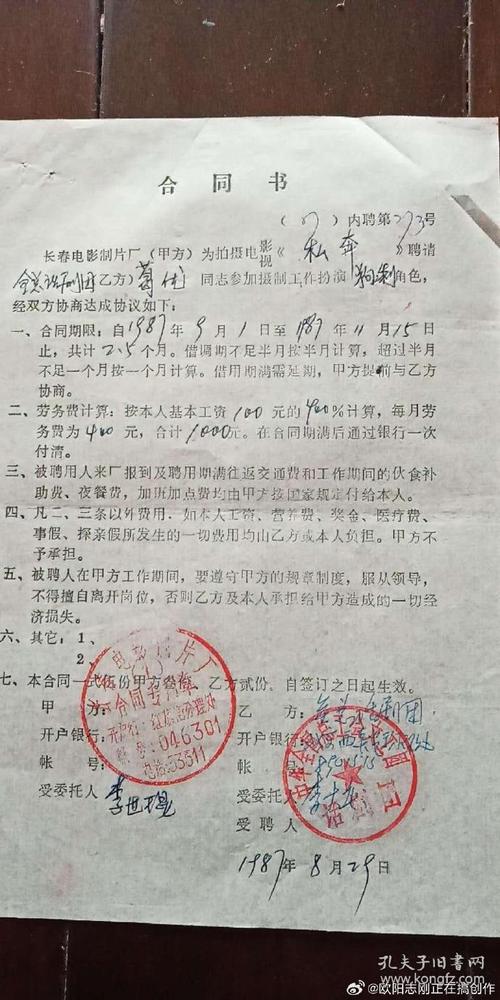 合同书
(87)内聘第273号
长春电影制片厂(甲方)为拍摄电影视《私奔》聘请
全总话剧团(乙方)葛优同志参加摄制工作扮演 角色,
经双方协商达成协议如下:
一、合同期限:自1987年9月1日至1987年11月15日
止,共计2.5个月。借调期不足半月按半月计算,超过半月
不足一个月按一个月计算。借用期满需延期,甲方提前与乙方
协商。
二、劳务费计算:按本人基本工资100元的400%计算,每月劳
务费为400元,合计1000元。在合同期满后通过银行一次
付清。
三、被聘用人来厂报到及聘用期满往返交通费和工作期间的伙食补
助费、夜餐费,加班加点费均由甲方按国家规定付给本人。
四、凡二、三条以外费用.如本人工资、营养费、奖金、医疗费、
事假、探亲假所发生的一切费用均由乙方或本人负担。甲方不
予承担。
五、被聘人在甲方工作期间,要遵守甲方的规章制度,服从领导,
不得擅自离开岗位,否则乙方及本人承担给甲方造成的一切经
济损失。
六、其它:1、
2、
七、本合同一式伍份甲方叁份,乙方贰份。自签订之日起生效。
甲方:
开户银行:
帐号:
受委托人
电影制片厂
合同专用章
开户行:红旗街办理处
帐号:046301
电话:53311
乙方:全总话剧团
开户银行:
帐号:
受委托人
受聘人
话剧团
1987年8月29日
孔夫子旧书网
www.kongfz.com
@欧阳志刚正在搞创作